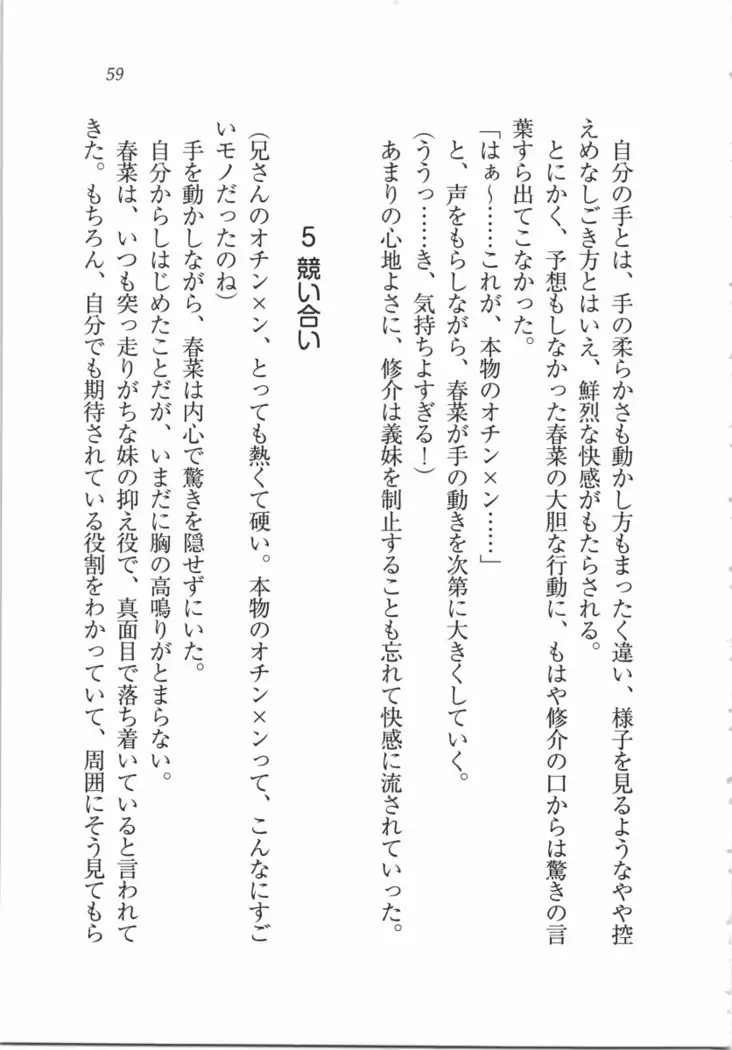 59
自分の手とは、手の柔らかさも動かし方もまったく違い、様子を見るようなやや控
えめなしごき方とはいえ、鮮烈な快感がもたらされる。
とにかく、予想もしなかった春菜の大胆な行動に、もはや修介の口からは驚きの言
葉すら出てこなかった。
「はぁ〜……これが、本物のオチン×ン……」
と、声をもらしながら、春菜が手の動きを次第に大きくしていく。
(ううっ……き、気持ちよすぎる！)
あまりの心地よさに、修介は義妹を制止することも忘れて快感に流されていった。
5 競い合い
(兄さんのオチン×ン、とっても熱くて硬い。本物のオチン×ンって、こんなにすご
いモノだったのね)
手を動かしながら、春菜は内心で驚きを隠せずにいた。
自分からしはじめたことだが、いまだに胸の高鳴りがとまらない。
春菜は、いつも突っ走りがちな妹の抑え役で、真面目で落ち着いていると言われて
きた。もちろん、自分でも期待されている役割をわかっていて、周囲にそう見てもら